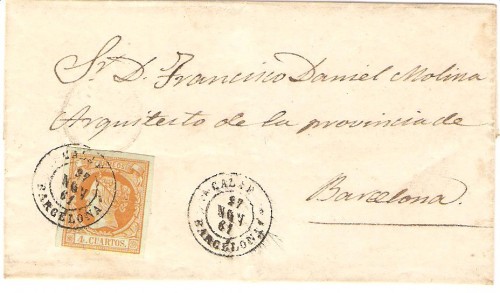 Sr. D. Francisco Daniel Molina
Arquitecto de la provincia de
Barcelona.
27
NOV
61
BARCELONA
4 CUARTOS.
27
NOV
61
BARCELONA